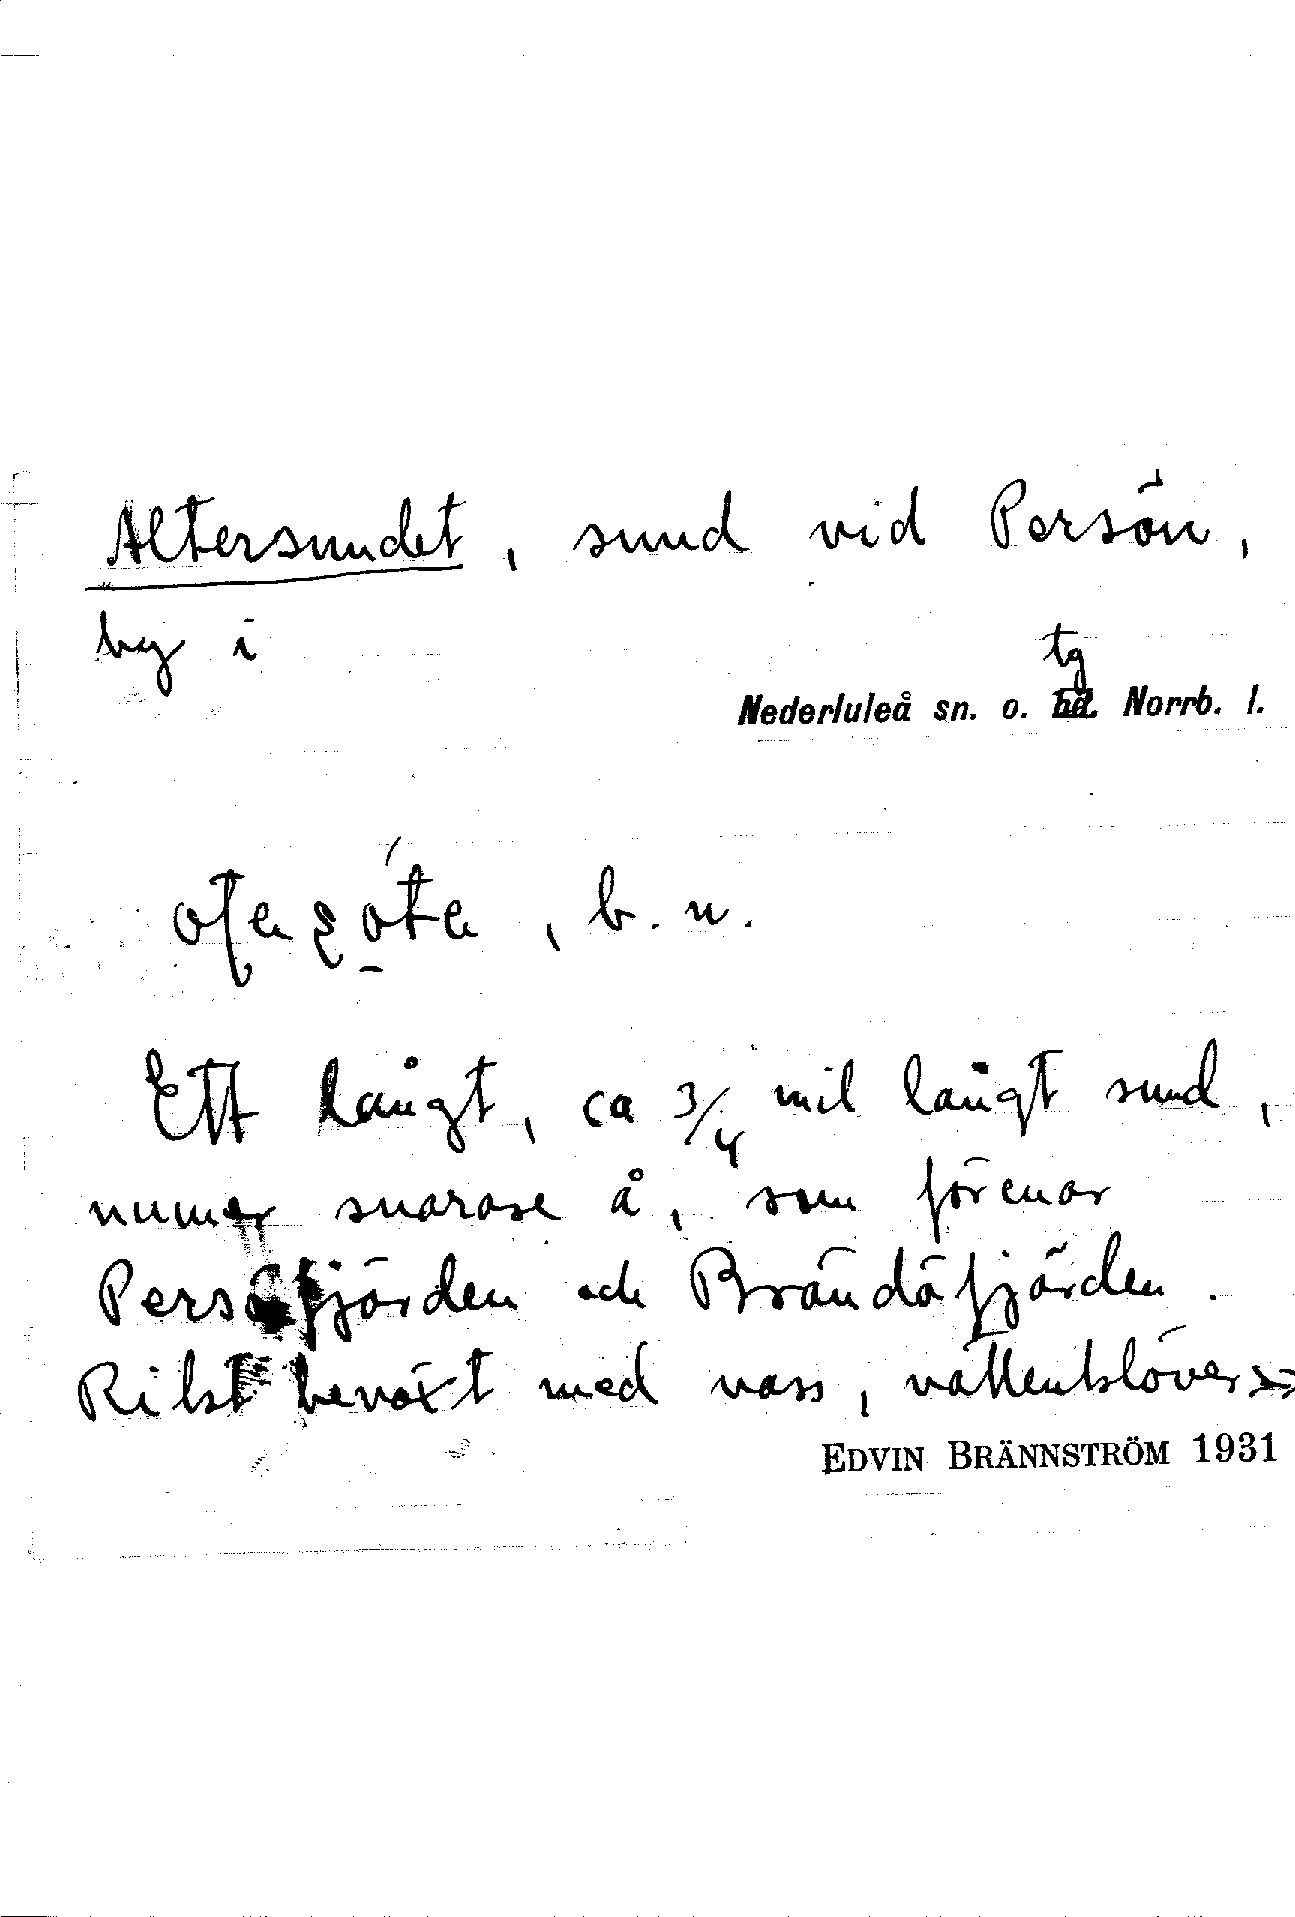 Altersundet, sund vid Persön,
by i
tg
Nederluleå sn. o. hd. Norrb. l.
, b. n.
Ett långt, ca 3/4 mil långt sund,
numer snarare å, som förenar
Persöfjärden och Brändöfjärden.
Rikt beväxt med vass, vattenklöver
EDVIN BRÄNNSTRÖM 1931